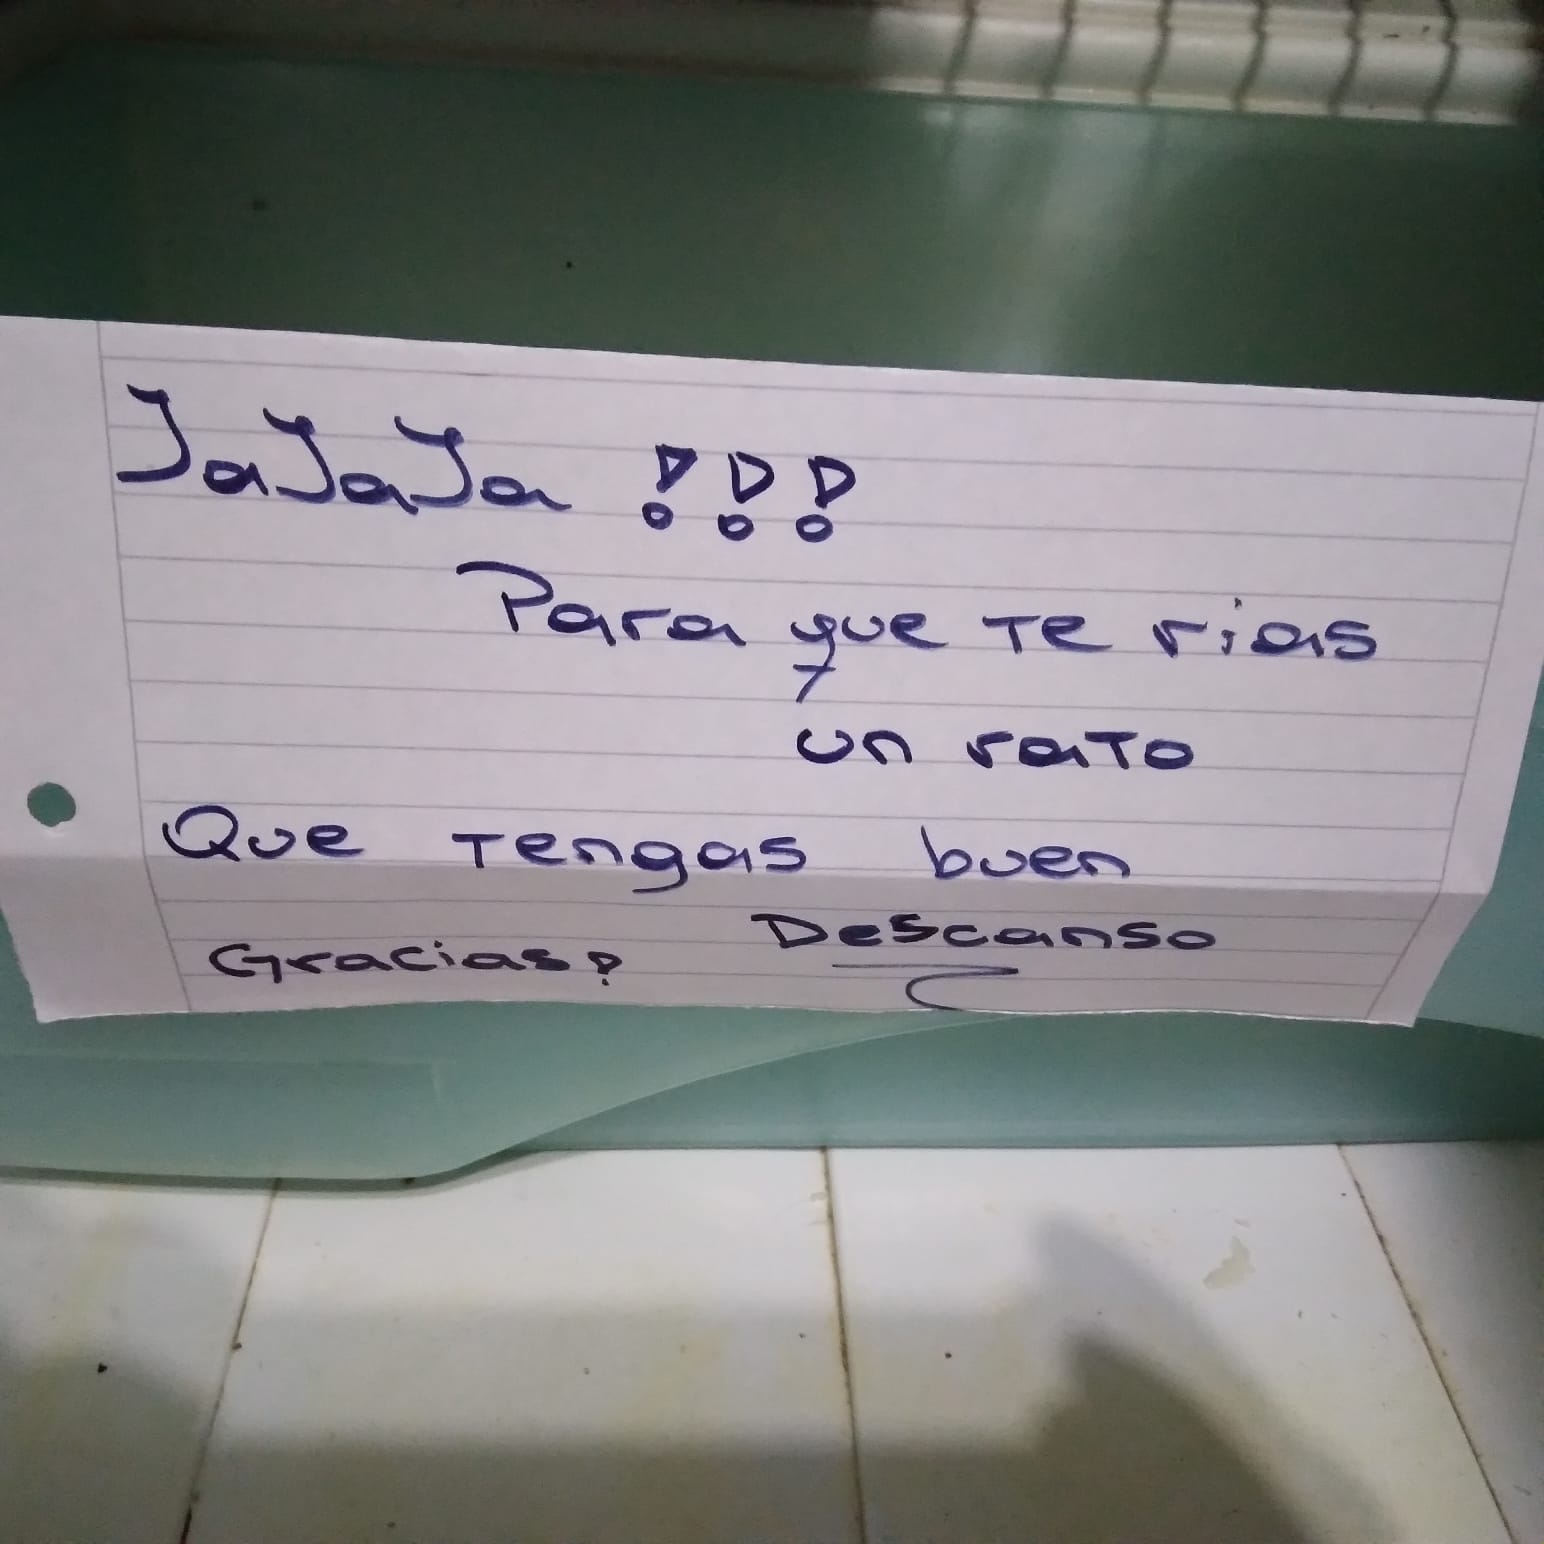 JaJaJa !!!
Para que Te rias
un raTo
Que Tengas buen
Descanso
Gracias!